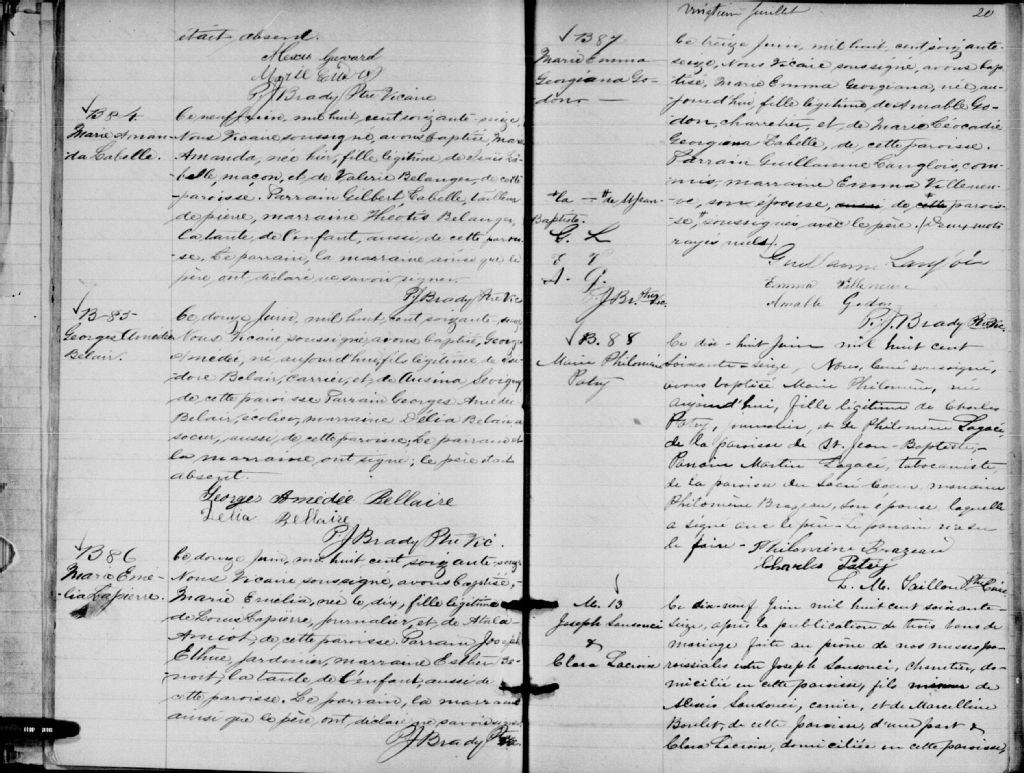 était absent.
Alexis Guevard
P. J. Brady Ptre Vicaire
B 84
Marie Aman-
da Labelle.
Ce neuf juin, mil huit cent soixante-seize,
Nous Vicaire soussigné, avons baptisé, Marie
Amanda, née hier, fille légitime de Louis La-
belle, maçon, et de Valerie Belanger, de cette
paroisse. Parrain Gilbert Labelle, tailleur
de pierre, marraine Théotis Belanger,
la tante, de l'enfant, aussi, de cette parois-
se. Le parrain, la marraine ainsi que le
père ont déclaré ne savoir signer.
P. J. Brady Ptre Vic
B-85
Georges Amédée
Belair.
Ce douze Juin, mil huit cent soixante-seize
Nous Vicaire soussigné avons baptisé, Georges
Amédée, né aujourd'hui, fils légitime de Isi-
dore Belair, carrier, et, de Ausina Sevigny
de cette paroisse Parrain Georges Amédée
Belair, écolier, marraine Délia Belair, sa
soeur, aussi, de cette paroisse. Le parrain et
la marraine, ont signé; le père était
absent.
Georges Amédée Bellaire
Delia Bellaire
P. J. Brady Ptre Vic.
B 86
Marie Emé-
lia Lapierre.
Ce douze Juin, mil huit cent soixante-seize
Nous Vicaire soussigné, avons baptisé,
Marie Emélia, née le dix, fille légitime
de Louis Lapierre, journalier, et, de Atala
Amiot, de cette paroisse. Parrain, Joseph
Ethue, jardinier, marraine Esther Be-
noit, la tante de l'enfant, aussi de
cette paroisse. Le parrain, la marraine
ainsi que le père, ont déclaré ne savoir signer
P. J. Brady Ptre Vic
vingtième feuillet
20
B 87
Marie Emma
Georgiana Go-
don
Ce treize Juin, mil huit cent soixante-
seize, Nous Vicaire soussigné, avons bap-
tisé, Marie Emma Georgiana, née au-
jourd'hui, fille légitime, de Amable Go-
don, charretier, et, de Marie Léocadie
Georgiana Labelle, de, cette paroisse.
Parrain Guillaume Langlois, com-
mis, marraine Emma Villeneu-
ve, son épouse, aussi de cette parois-
se, soussignés, avec le père. (Deux mots
rayés nuls).
*la — # de St Jean-
Baptiste.
G. L
E V
A. G.
P. J. Br. Ptre Vic.
Guillaume Langlois
Emma Villeneuve
Amable Godon
P. J. Brady Ptre Vic.
B. 88
Marie Philomène
Patry
Ce dix-huit juin mil huit cent
soixante-seize, Nous, Curé soussigné,
avons baptisé Marie Philomène, née
aujourd'hui, fille légitime de Charles
Patry, journalier, et de Philomène Lagacé,
de la paroisse de St. Jean-Baptiste,
Parrain Martin Lagacé, tabaconiste
de la paroisse du Sacré Coeur, marraine
Philomène Brazeau, son épouse, laquelle
a signé avec le père. Le parrain n'a su
le faire.
Philomène Brazeau
Charles Patry
L. M. Taillon Ptre Curé
M. 13
Joseph Sansouci
&
Clara Lacroix
Ce dix-neuf Juin mil huit cent soixante-
seize, après la publication de trois bans de
mariage faite au prône de nos messes pa-
roissiales entre Joseph Sansouci, charretier, do-
micilié en cette paroisse, fils mineur de
Alexis Sansouci, carrier, et de Marcelline
Boulet, de cette paroisse, d'une part &
Clara Lacroix, domiciliée en cette paroisse,